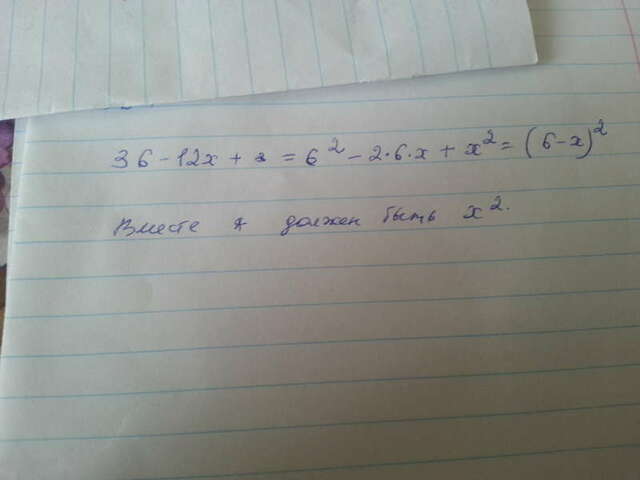 36 - 12x + * = 6² - 2·6·x + x² = (6-x)²
Вместе * должен быть x².